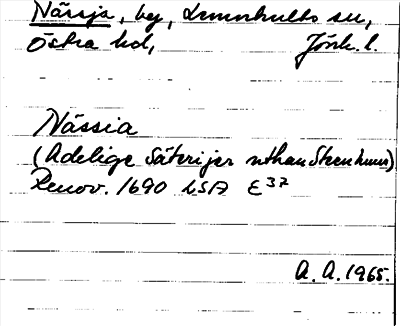 Nässja, by, Linnhults sn,
Östra hd, Jönk. l.
Nässia
(Adelige Säterijer uthan Steenhuus)
Renov. 1690 LSA E37
A. A. 1965.